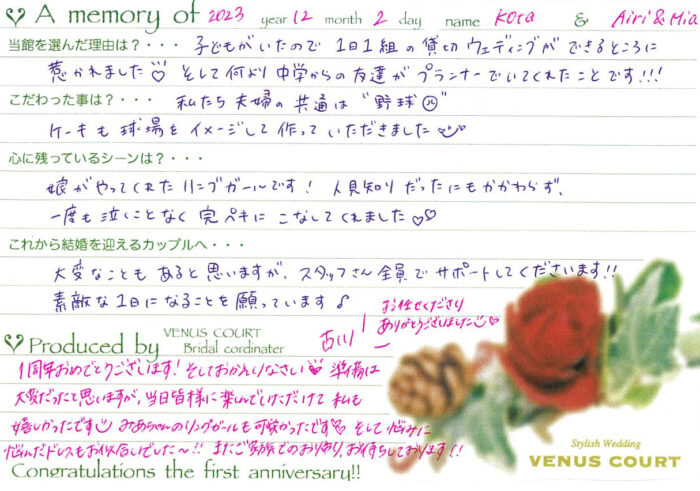 A memory of 2023 year 12 month 2 day name Kota & Airi & Mia
当館を選んだ理由は?・・・ 子どもがいたので 1日1組の貸切ウェディングができるところに
惹かれました♡ そして何より中学からの友達がプランナーでいてくれたことです!!!
こだわった事は?・・・ 私たち夫婦の共通は"野球"
ケーキも球場をイメージして作っていただきました
心に残っているシーンは?・・・
娘がやってくれたリングガールです! 人見知りだったにもかかわらず、
一度も泣くことなく完ペキにこなしてくれました♡♡
これから結婚を迎えるカップルへ・・・
大変なこともあると思いますが、スタッフさん全員でサポートしてくださいます!!
素敵な1日になることを願っています♪
お任せくださり
ありがとうございました♡
Produced by VENUS COURT Bridal cordinater 古川
1周年おめでとうございます! そしておかえりなさい♡ 準備は
大変だったと思いますが、当日皆様に楽しんでいただけて私も
嬉しかったです みあちゃんのリングガールも可愛かったです♡ そして悩みに
悩んだドレスもお似合いでした〜!! またご家族でのおかえり、お待ちしております!!
Congratulations the first anniversary!!
Stylish Wedding
VENUS COURT